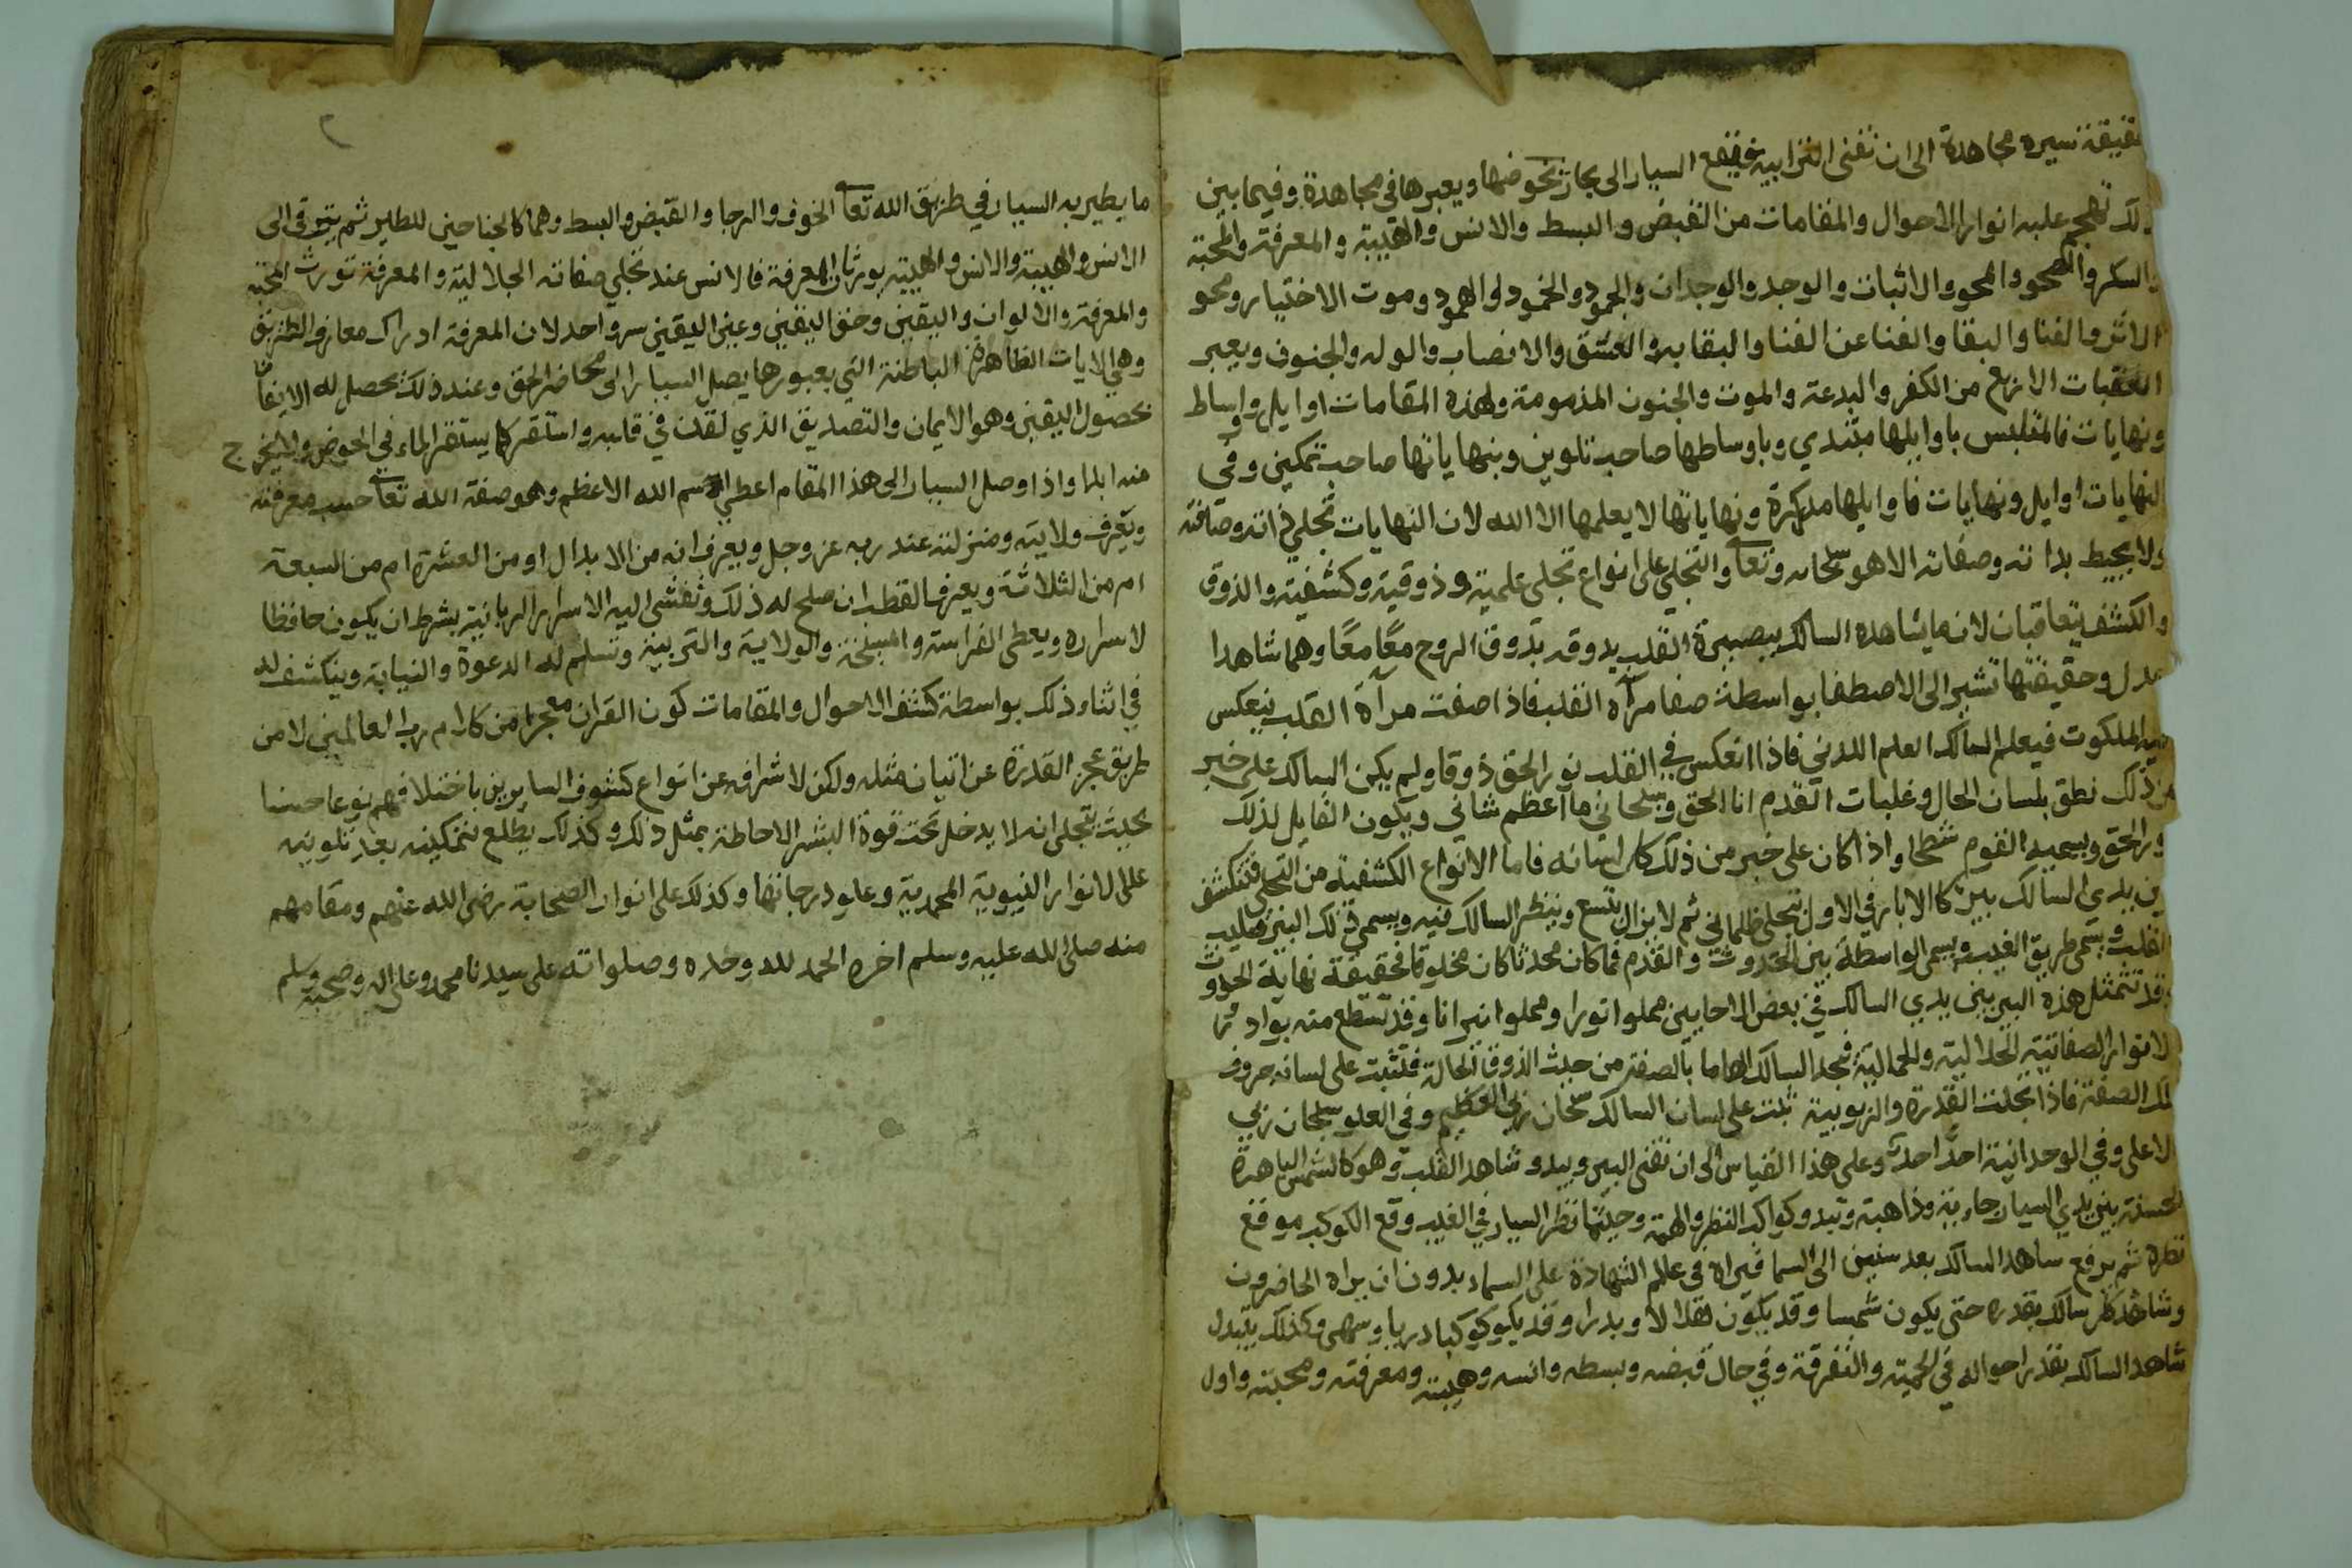 حقيقة سيره مجاهدة الى ان تفنى الترابية فيقع السيار الى بحار يخوضها ويعبرها في مجاهدة وفيما بين
ذلك تهجم عليه انوار الاحوال والمقامات من القبض والبسط والانس والهيبة والمعرفة والمحبة
والسكر والصحو والمحو والاثبات والوجد والوجدان والجمود والخمود والهمود وموت الاختيار ومحو
الاثر والفنا والبقا والفنا عن الفنا والبقا به والعشق والانصاب والوله والجنون ويعبر
العقبات الاربع من الكفر والبدعة والموت والجنون المذمومة ولهذه المقامات اوايل واوساط
ونهايات فالمتلبس باوايلها مبتدي وباوساطها صاحب تلوين وبنهاياتها صاحب تمكين وفي
النهايات اوايل ونهايات فاوايلها مدركة ونهاياتها لا يعلمها الا الله لان النهايات تجلي ذاته وصفاته
ولا يحيط بذاته وصفاته الا هو سبحانه وتعا والتجلي على انواع تجلي علمية وذوقية وكشفية والذوق
والكشف يتعاقبان لان ما يشاهده السالك ببصيرة القلب يذوقه بذوق الروح معًا معًا وهما شاهدا
عدل وحقيقتها تشير الى الاصطفا بواسطة صفا مرآه القلب فاذا صفت مرآة القلب ينعكس
فيه الملكوت فيعلم السالك العلم اللدني فاذا انعكس في القلب نور الحق ذوقا ولم يكن السالك على خبر
من ذلك نطق بلسان الحال وغلبات القدم انا الحق وسبحاني ما اعظم شاني ويكون القايل لذلك
نور الحق ويسميه القوم شطحا واذا كان على خبر من ذلك كل لسانه فاما الانواع الكشفية من التجلي فتنكشف
بين يدي السالك بير كالابار في الاول تتجلى ظلماني ثم لا يزال تتسع وينظر السالك فيه ويسمى ذلك البير قليب
القلب ويسمى طريق الغيب ويسمى الواسطة بين الحدوث والقدم فما كان محدثا كان مخلوقا فحقيقة نهاية الحدوث
وقد تتمثل هذه البير بين يدي السالك في بعض الاحايين مملوا نورا ومملوا نيرانا وقد تسطع منه بوادر
الانوار الصفاتية الجلالية والجمالية فيجد السالك الهاما بالصفة من حيث الذوق والحالة فتثبت على لسانه حروف
تلك الصفة فاذا تجلت القدرة والربوبية ثبت على لسان السالك سبحان ربي العظيم وفي العلو سبحان ربي
الاعلى وفي الوحدانية احدٌ احدٌ وعلى هذا القياس الى ان تفنى البير ويبدو شاهد القلب وهو كالشمس الباهرة
الحسنة بين يدي السيار جاية وذاهبة وتبدو كواكب النظر والهمة وحيثما نظر السيار في الغيب وقع الكوكب موقع
نظره ثم يرفع شاهد السالك بعد سنين الى السما فيراه في عالم الشهادة على السماء بدون ان يراه الحاضرون
وشاهد كل سالك بقدره حتى يكون شمسا وقد يكون هلالا وبدرا وقد يكون كوكبا دريا وسهى وكذلك يتبدل
شاهد السالك بقدر احواله في الجمعية والتفرقة وفي حال قبضه وبسطه وانسه وهيبته ومعرفته ومحبته واول
٢
ما يطير به السيار في طريق الله تعا الخوف والرجا والقبض والبسط وهما كالجناحين للطير ثم يترقى الى
الانس والهيبة والانس والهيبة يورثان المعرفة فالانس عند تجلي صفاته الجلالية والمعرفة تورث المحبة
والمعرفة والالوان واليقين وحق اليقين وعين اليقين سر واحد لان المعرفة ادراك معارف الطريق
وهي الايات الظاهرة الباطنة التي بعبورها يصل السيار الى محاضر الحق وعند ذلك يحصل له الايقان
بحصول اليقين وهو الايمان والتصديق الذي لقن في قلبه واستقر كما يستقر الماء في الحوض ولا يخرج
منه ابدا واذا وصل السيار الى هذا المقام اعطي اسم الله الاعظم وهو صفة الله تعا حسب معرفته
ويعرف ولايته ومنزلته عند ربه عز وجل ويعرف انه من الابدال او من العشرة ام من السبعة
ام من الثلاثة ويعرفه القطب ان صلح له ذلك وتفشى اليه الاسرار الربانية بشرط ان يكون حافظا
لاسراره ويعطى الفراسة والمشيخة والولاية والتربية وتسلم له الدعوة والنيابة وينكشف له
في اثناء ذلك بواسطة كشف الاحوال والمقامات كون القران معجزا من كلام رب العالمين لا من
طريق عجز القدرة عن اتيان مثله ولكن لاشرافه عن انواع كشوف السايرين باختلافهم نوعا حسنا
بحيث تتجلى انه لا يدخل تحت قوة البشر الاحاطة بمثل ذلك وكذلك يطلع بتمكينه بعد تلوينه
على الانوار النبوية المحمدية وعلو درجاتها وكذلك على انوار الصحابة رضي الله عنهم ومقامهم
منه صلى الله عليه وسلم اخره الحمد لله وحده وصلواته على سيدنا محمد وعلى اله وصحبه وسلم